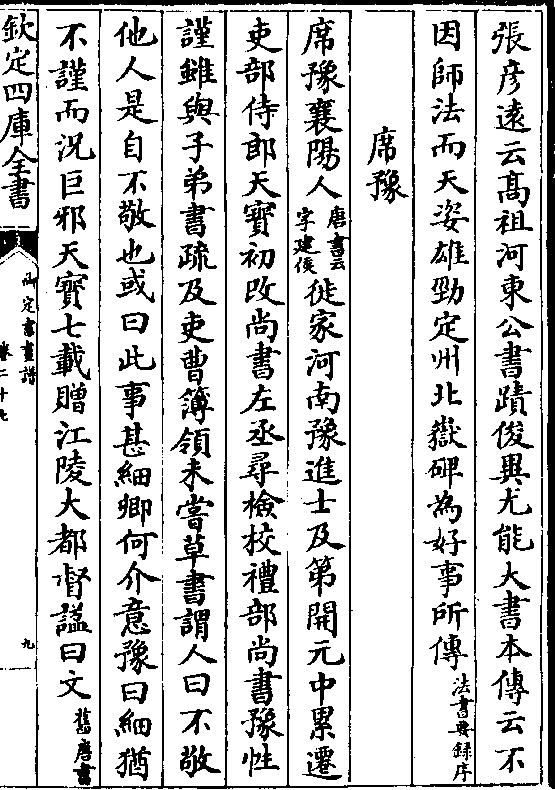 張彦遠云髙祖河東公書蹟俊異尤能大書本傳云不
因師法而天姿雄勁定州北嶽碑為好事所傳法書要録序
席豫
席豫襄陽人唐書云字建侯徙家河南豫進士及第開元中累遷
吏部侍郎天寳初改尚書左丞尋檢校禮部尚書豫性
謹雖與子弟書疏及吏曹簿領未嘗草書謂人曰不敬
他人是自不敬也或曰此事甚細卿何介意豫曰細猶
不謹而況巨邪天寳七載贈江陵大都督諡曰文舊唐書
欽定四庫全書
御定書畫譜
卷二十九
九